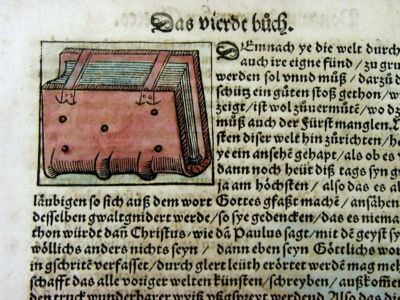 Das vierde bůch.
DEmnach ye die welt durch
auch ire eigne sünd / zu gru
werden sol vnnd můß / darzů d
schütz ein gůten stoß gethon / w
zeigt / ist wol zůuermůtē / wo dz
můß auch der Fürst manglen.
sten diser welt hin zůrichten / h
ye ein ansehē gehapt / als ob es v
dann noch heüt diß tags syn g
ja am höchsten / also das es al
läubigen so sich auß dem wort Gottes gfaßt machē / ansähen
desselben gwaltgnidert werde / so sye gedencken / das es niema
thon würdt dañ Christus / wie dā Paulus sagt / mit dē geyst sy
wöllichs anders nichts seyn / dann eben seyn Göttlichs wo
in gschrifte verfasset / durch glert leüth erörtert werde mag meh
schafft das aller voriger welten künsten / schreyben / außkomē
den truck wunderbarer wyß vßgspreyt werden / Also das di